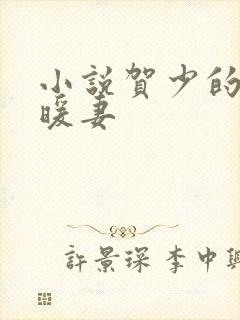 小說賀少的
暖妻
許景琛 李中興